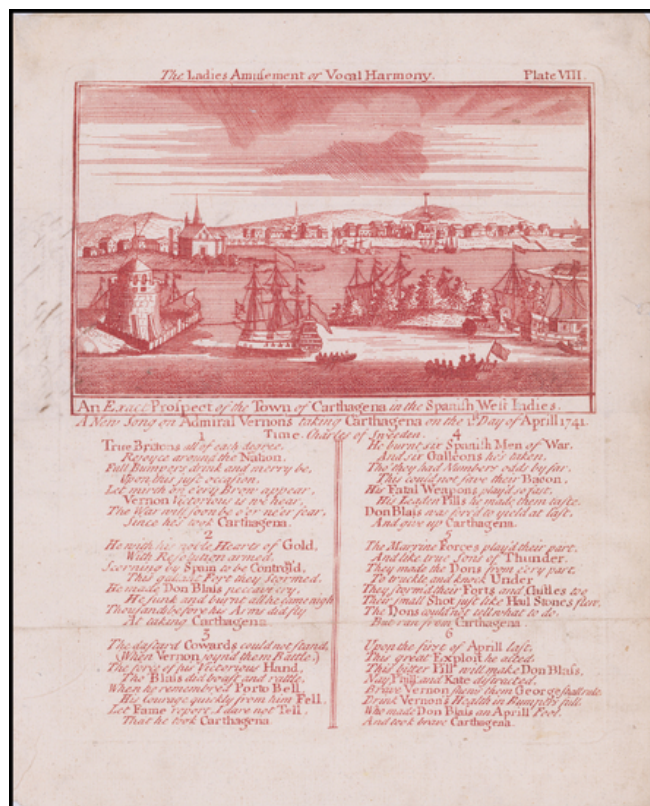 The Ladies Amusement or Vocal Harmony. Plate VIII.
An Exact Prospect of the Town of Carthagena in the Spanish West Indies.
A New Song on Admiral Vernons taking Carthagena on the 1st Day of Aprill 1741.
Time. Charles of Sweeden.
1
True Britons all of each degree,
Rejoyce around the Nation,
Full Bumpers drink and merry be,
Upon this just occasion,
Let mirth on e'ery Brow appear,
Vernon Victorious is we hear,
The War will soon be o'er ne'er fear,
Since he's took Carthagena.
2
He with his noble Hearts of Gold,
With Resolution armed,
Scorning by Spain to be Control'd,
This gallant Fort they Stormed.
He made Don Blais peccavi cry,
He sunk and burnt all he came nigh
Thousands before his Arms did fly
At taking Carthagena.
3
The dastard Cowards could not stand,
(When Vernon joynd them Battle.)
The force of his Victorious Hand,
Tho' Blais did boast and rattle.
When he remembred Porto Bell,
His Courage quickly from him Fell,
Let Fame report, I dare not Tell,
That he took Carthagena.
4
He burnt six Spanish Men of War,
And six Galleons he's taken,
Tho' they had Numbers odds by far,
This could not save their Bacon,
His Fatal Weapons play'd so fast,
His Leaden Pills he made them taste,
Don Blais was forc'd to yield at last,
And give up Carthagena.
5
The Marrine Forces play'd their part,
And like true Sons of Thunder,
They made the Dons from e'ery part,
To truckle and knock Under
They storm'd their Forts and Castles too
Their small Shot just like Hail Stones flew,
The Dons could not tell what to do,
But run from Carthagena.
6
Upon the first of Aprill last,
This great Exploit he acted,
This bitter Pill will make Don Blais,
Nay Phill and Kate distracted,
Brave Vernon shew'd them George shall rule
Drink Vernon's Health in Bumpers full,
Who made Don Blais an Aprill Fool,
And took brave Carthagena.